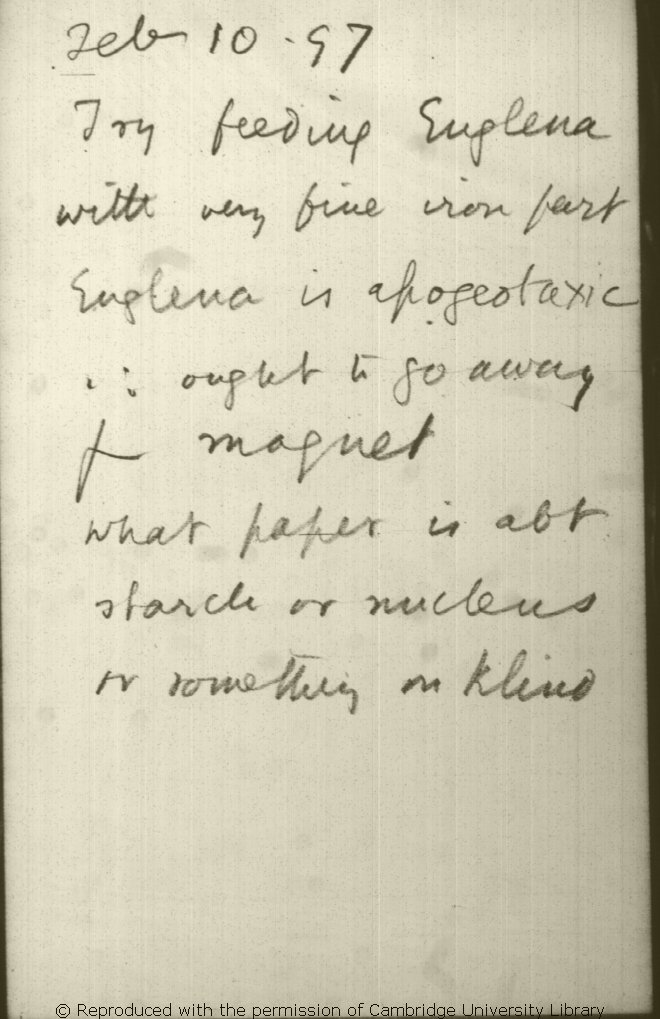 Feb 10 . 97
Try feeding Euglena
with very fine iron part
Euglena is apogeotaxic
∴ ought to go away
f magnet
what paper is abt
starch or nucleus
or something on klino
© Reproduced with the permission of Cambridge University Library